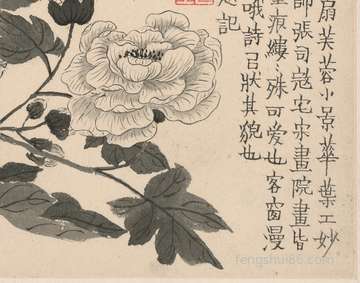 扇芙蓉小景華葉工妙
師張司寇宅宋畫院畫皆
痕縷〻殊可愛也客窗漫
哦詩㠯狀其貌也
記
fengshui86.com